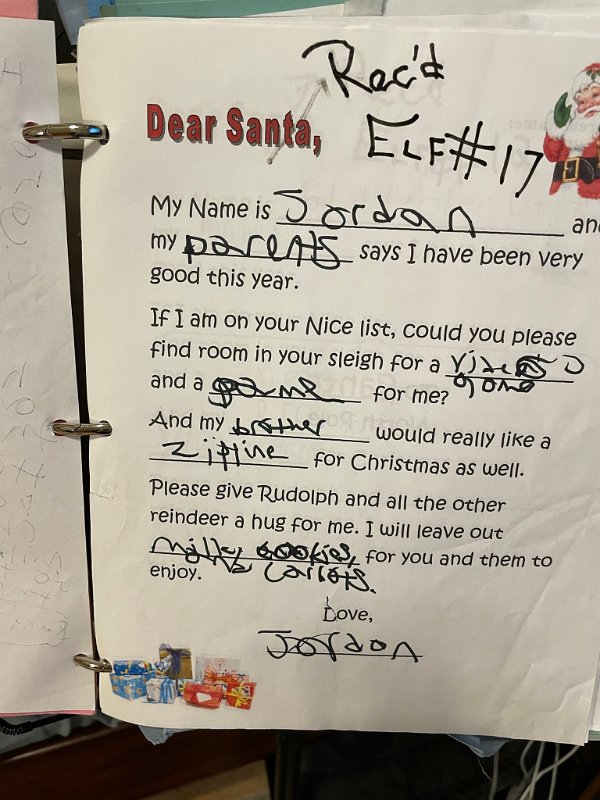 Rec'd
Dear Santa,
ELF#17
My Name is Jordan an
my parents says I have been very
good this year.
If I am on your Nice list, could you please
find room in your sleigh for a video
game
and a game for me?
And my brother would really like a
Zipline for Christmas as well.
Please give Rudolph and all the other
reindeer a hug for me. I will leave out
milk, cookies, for you and them to
enjoy. & Carrots.
Love,
Jordan